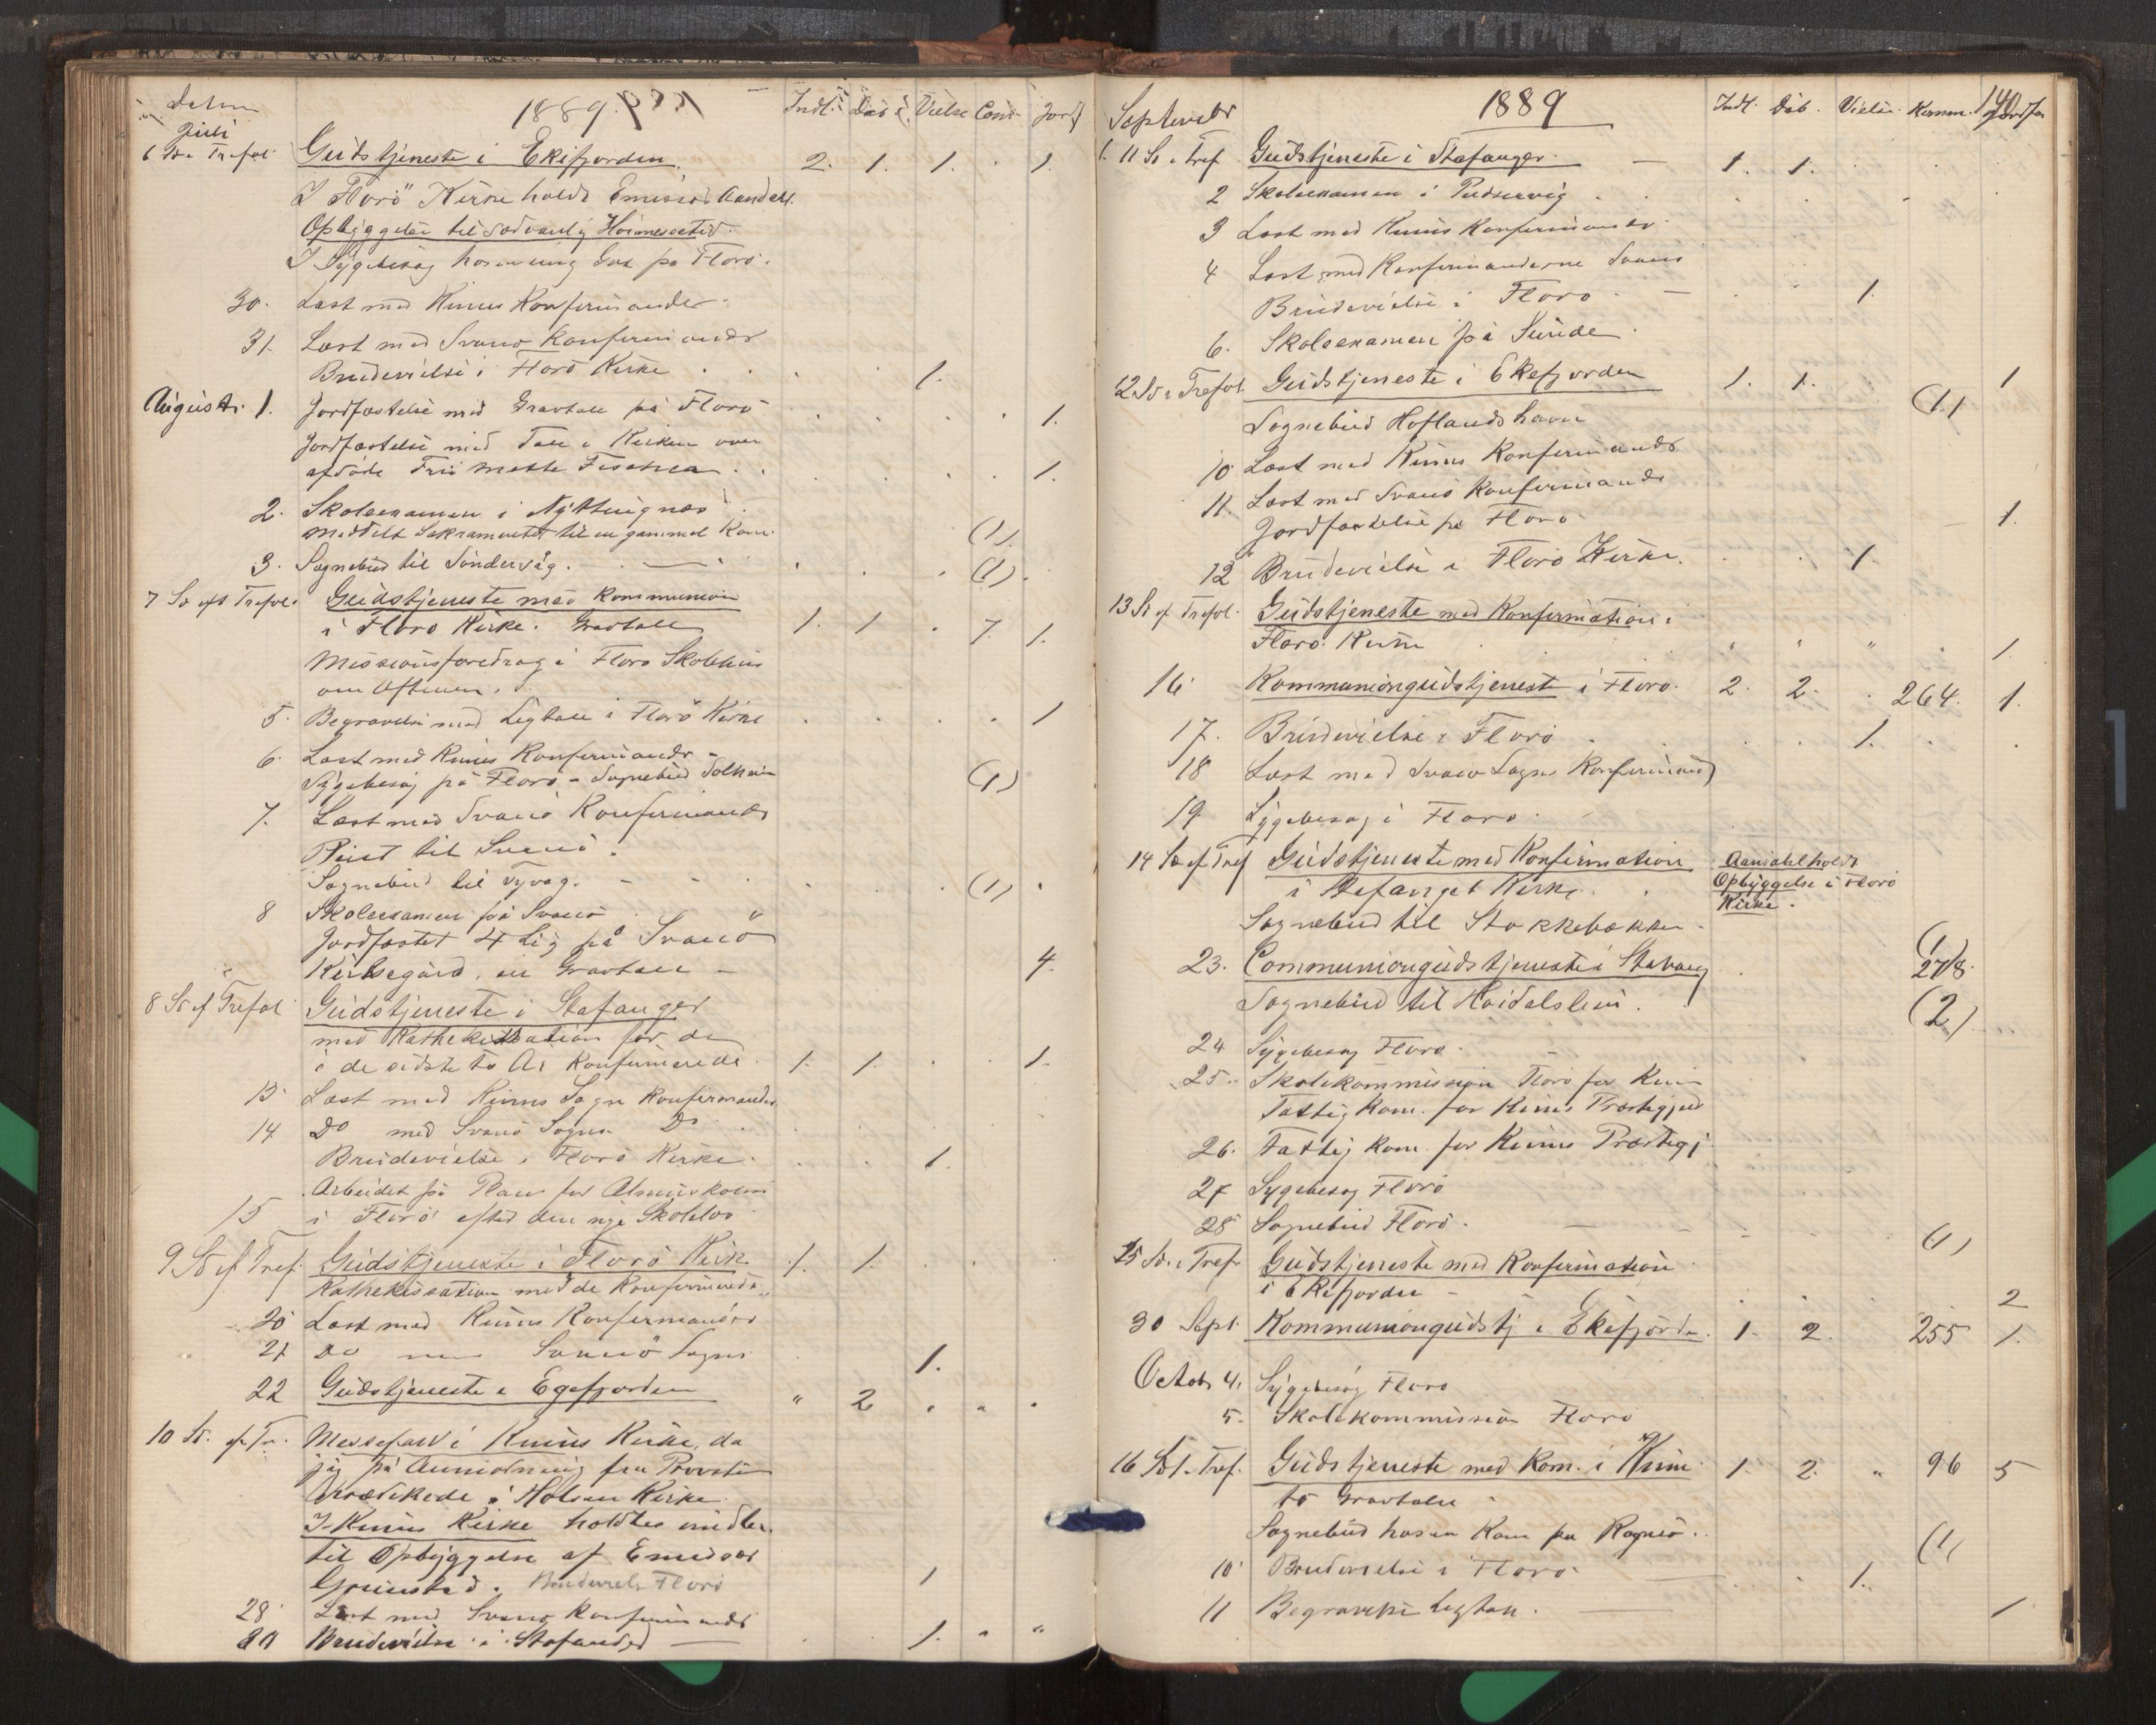 Datum 1889. Indl. Daab. Vielse Com. Jordf
Juli
6 Sø. Trefol. Gudstjeneste i Ekefjorden 2. 1. 1. 1.
I Florö Kirke holdt Emissær Aandahl
Opbyggelse til sedvanlig Høimessetid.
I Sygebesøg hos en ung Gut på Florö.
30. Læst med Kinns Konfirmander
31. Læst med Svanö Konfirmander
Brudevielse i Florö Kirke 1.
August. 1. Jordfæstelse med Gravtale på Florö 1.
Jordfæstelse med Tale i Kirken over
afdøde Fru Mette Fischer 1.
2. Skoleexamen i Nyttingnes
meddelt Sakramentet til en gammel Kone (1)
3. Sognebud til Söndervåg. (1)
7 Sø eft Trefol. Gudstjeneste med Kommunion
i Florö Kirke. Gravtale 1. 1 7. 1.
Missionsforedrag i Florö Skolehus
om Aftenen.
5. Begravelse med Ligtale i Florö Kirke 1
6. Læst med Kinns Konfirmander
Sygebesøg på Florö - Sognebud (1)
7. Læst med Svanö Konfirmander
Reist til Svanö.
Sognebud til (1)
8 Skoleexamen på Svanö
Jordfæstet 4 Lig på Svanö
Kirkegård, en Gravtale 4.
8 Sø ef Trefol Gudstjeneste i Stafanger
med Kathekisation for de
i de sidste to År Konfirmerede 1. 1. 1.
13. Læst med Kinns Sogns Konfirmander
14. Do med Svanö Sogns Do
Brudevielse i Florö Kirke 1.
Arbeidet på Plan for Almueskolen
15 i Florö efter den nye Skolelov
9 Sø ef Tref. Gudstjeneste i Florö Kirke 1. 1.
Kathekisation med de Konfirmerede
20 Læst med Kinns Konfirmander
21 Do med Svanö Sogns 1.
22 Gudstjeneste i Egefjorden " 2 " " "
10 Sø. ef Tr. Messefald i Kinns Kirke, da
jeg på Anmodning fra Provsten
prædikede i Holsen Kirke.
I Kinns Kirke holdtes imidler.
til Opbyggelse af Emissær
Grimstad. Brudevielse Florö 1
28. Læst med Svanö Konfirmander
Brudevielse i Stafanger 1. " "
September 1889 Indl. Dåb. Vielse Komm. Jordfæ
140
1. 11 Sø. Tref. Gudstjeneste i Stafanger. 1. 1.
2 Skoleexamen i
3 Læst med Kinns Konfirmander
4 Læst med Konfirmanderne Svanö
Brudevielse i Florö 1.
6. Skoleexamen på Sunde
12 Sø. Trefol. Gudstjeneste i Ekefjorden 1. 1. 1
Sognebud Hoflandshavn (1.)
10 Læst med Kinns Konfirmander
11. Læst med Svanö Konfirmander
Jordfæstelse på Florö 1.
12 Brudevielse i Florö Kirke. 1.
13 Sø ef Trefol. Gudstjeneste med Konfirmation i
Florö Kinn " " " 1.
16 Kommuniongudstjeneste i Florö. 2. 2. 264. 1.
17. Brudevielse i Florö 1.
18 Læst med Svanö Sogns Konfirmand
19 Sygebesøg i Florö.
14 Sø ef Tref Gudstjeneste med Konfirmation
i Stafanger Kirke.
Aandahl holdt
Opbyggelse i Florö
Kirke.
Sognebud til Stokkebækken (1)
23. Communiongudstjeneste i Stavang 278.
Sognebud til (2)
24 Sygebesøg Florö.
25. Skolekommission Florö for Kinn
Fattigkom. for Kinns Præstegjeld
26. Fattigkom. for Kinns Præstegj.
27 Sygebesøg Florö
28 Sognebud Florö. (1)
15 Sø. Tref Gudstjeneste med Konfirmation
i Ekefjorden 2
30 Sept. Kommuniongudstj i Ekefjorden. 1. 2. 255 1.
Octob. 4. Sygebesøg Florö
5. Skolekommission Florö
16 Sø i Tref. Gudstjeneste med Kom. i Kinn 1. 2. " 96 5
to Gravtaler
Sognebud hos en Kone på (1)
10 Brudevielse i Florö 1.
11 Begravelse Ligtale. 1